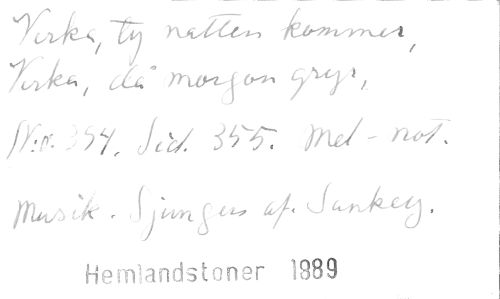 Virka, ty natten kommer,
Virka, då morgon gryr,
No. 354. Sid. 355. Mel-not.
Musik. Sjunges af. Sankey.
Hemlandstoner 1889